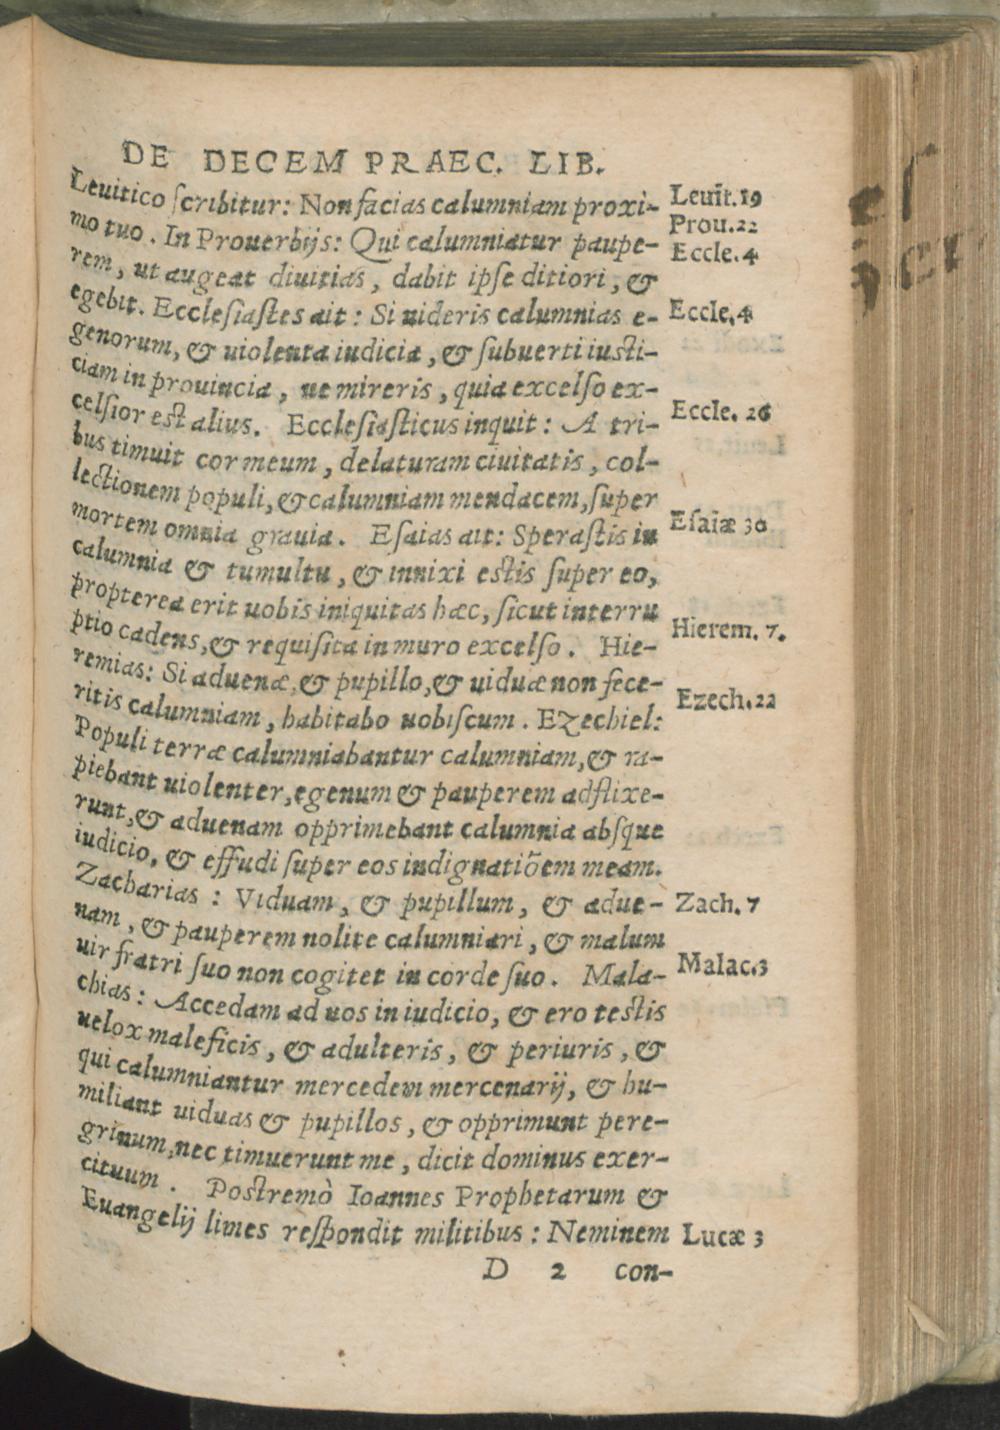 DE DECEM PRAEC. LIB.
Leuitico ſcribitur: Non facias calumniam proxi- Leuit.19
mo tuo. In Prouerbijs: Qui calumniatur paupe- Prou.22
rem, ut augeat diuitias, dabit ipſe ditiori, & Eccle.4
egebit. Eccleſiaſtes ait: Si uideris calumnias e- Eccle.4
genorum, & uiolenta iudicia, & ſubuerti iuſti-
ciam in prouincia, ne mireris, quia excelſo ex-
celſior eſt alius. Eccleſiaſticus inquit: A tri- Eccle. 26
bus timuit cor meum, delaturam ciuitatis, col-
lectionem populi, & calumniam mendacem, ſuper
mortem omnia grauia. Eſaias ait: Speraſtis in Eſaiæ 30
calumnia & tumultu, & innixi eſtis ſuper eo,
propterea erit uobis iniquitas hæc, ſicut interru
ptio cadens, & requiſita in muro excelſo. Hie- Hierem. 7.
remias: Si aduenæ, & pupillo, & uiduæ non fece-
ritis calumniam, habitabo uobiſcum. Ezechiel: Ezech.22
Populi terræ calumniabantur calumniam, & ra-
piebant uiolenter, egenum & pauperem adflixe-
runt, & aduenam opprimebant calumnia abſque
iudicio, & effudi ſuper eos indignatiōem meam.
Zacharias: Viduam, & pupillum, & adue- Zach. 7
nam, & pauperem nolite calumniari, & malum
uir fratri ſuo non cogitet in corde ſuo. Mala- Malac.3
chias: Accedam ad uos in iudicio, & ero teſtis
uelox maleficis, & adulteris, & periuris, &
qui calumniantur mercedem mercenarij, & hu-
miliant uiduas & pupillos, & opprimunt pere-
grinum, nec timuerunt me, dicit dominus exer-
cituum. Poſtremò Ioannes Prophetarum &
Euangelij limes reſpondit militibus: Neminem Lucæ 3
D 2 con-